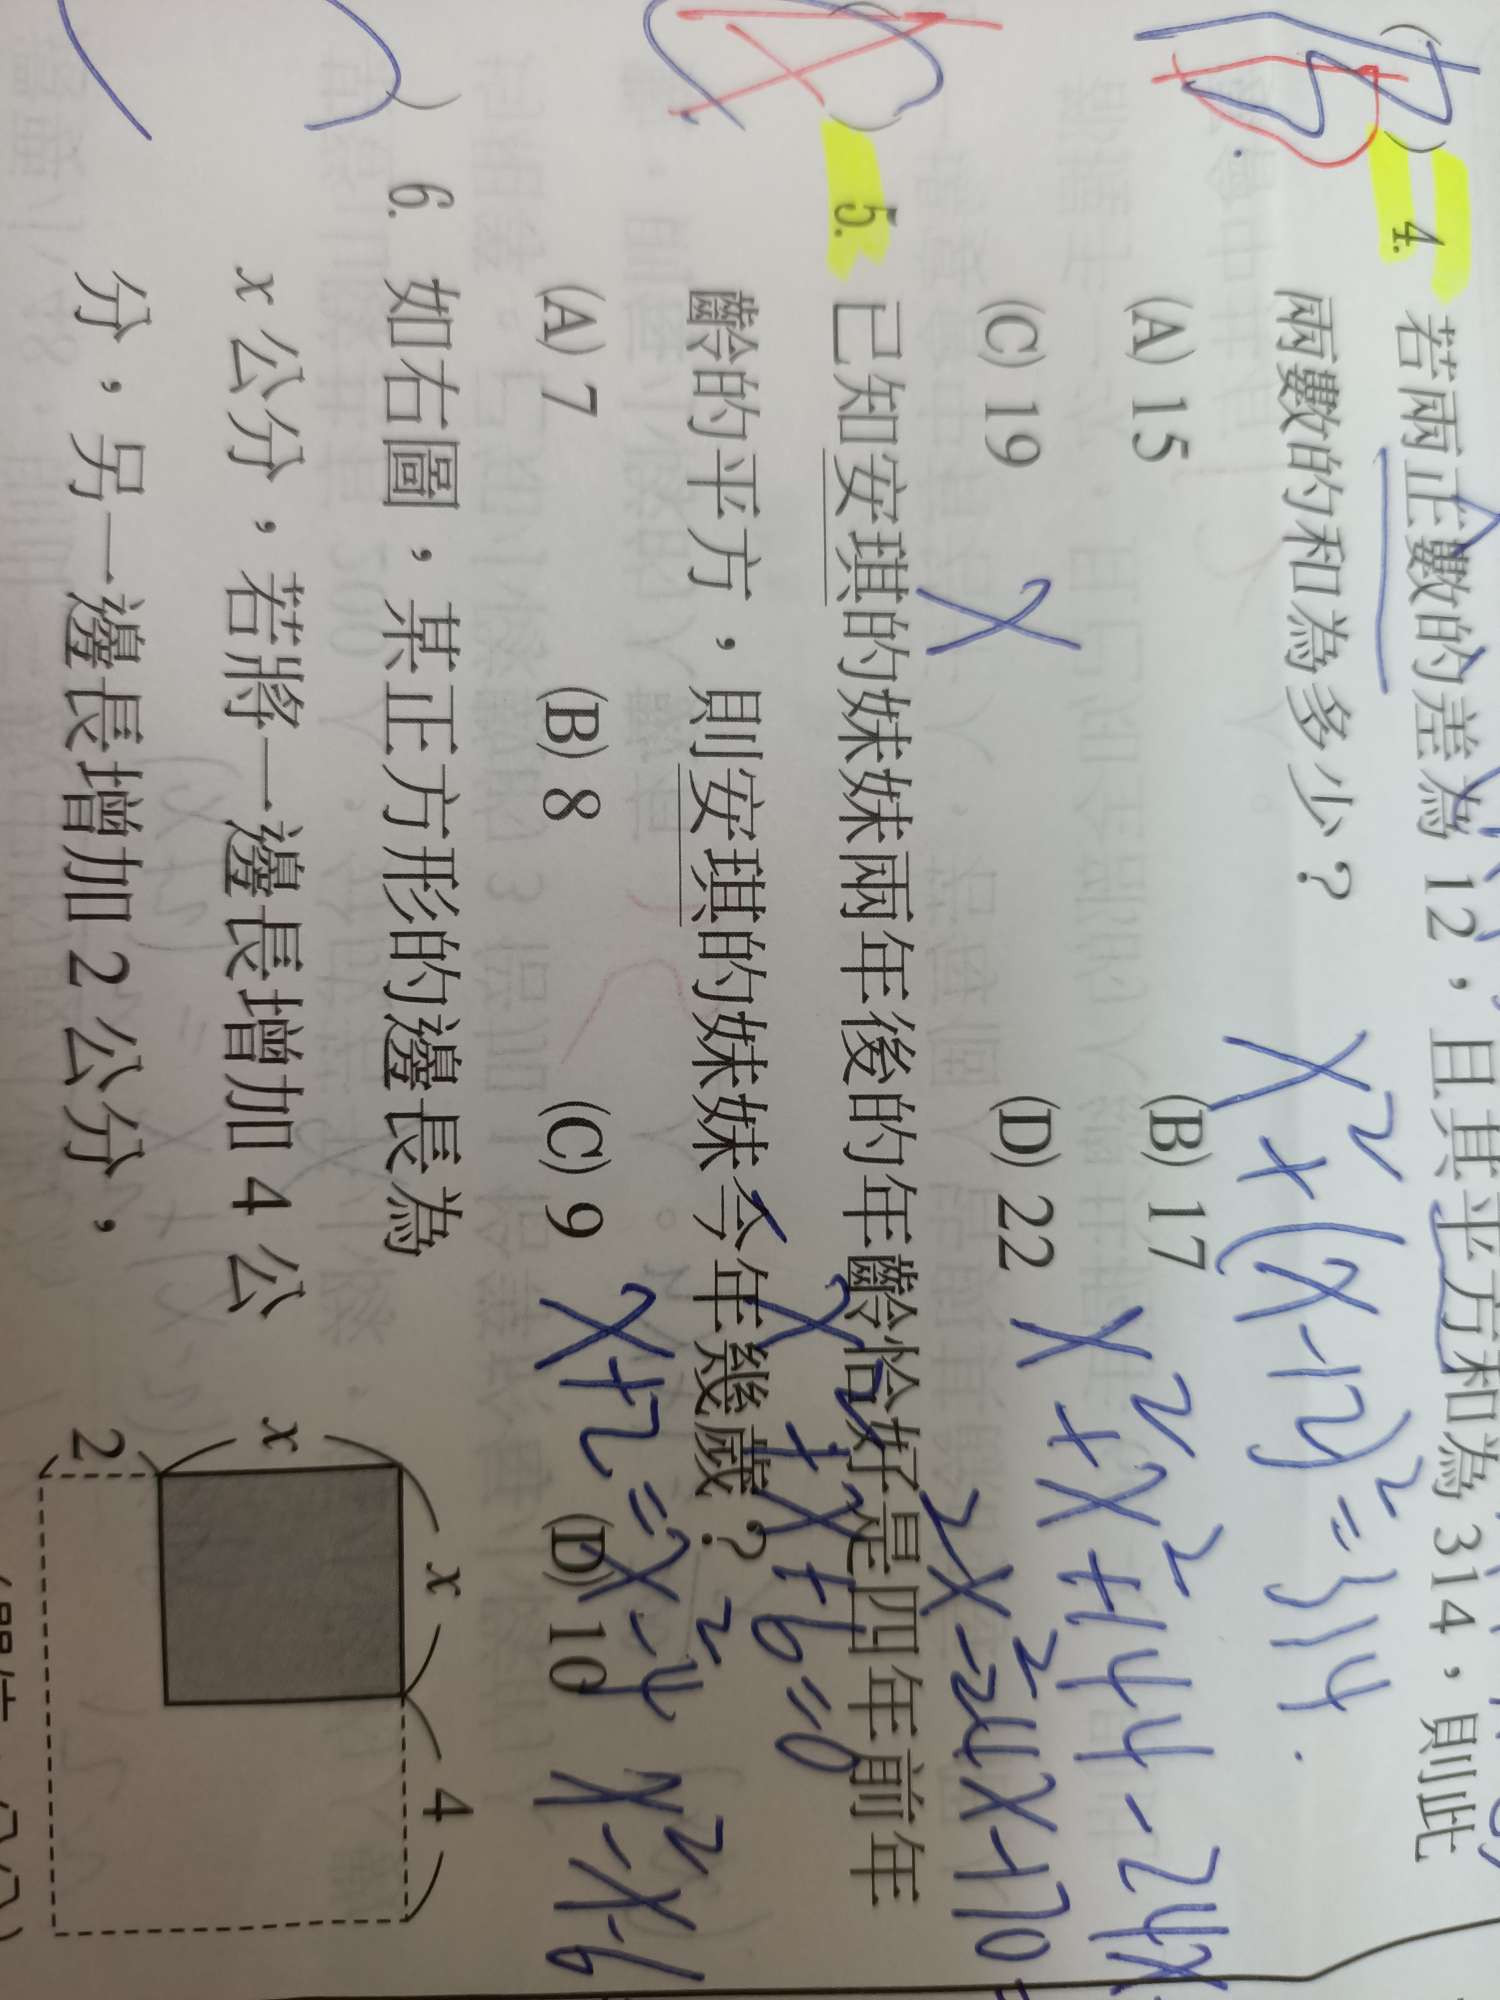 ( B ) 4. 若兩正數的差為 12，且其平方和為 314，則此
兩數的和為多少？
x²+(x-12)²=314
(A) 15 (B) 17
x²+x²+144-24x
(C) 19 (D) 22
2x²-24x-170
( ) 5. 已知安琪的妹妹兩年後的年齡恰好是四年前年
齡的平方，則安琪的妹妹今年幾歲？
+x+6=0
(A) 7 (B) 8 (C) 9 (D) 10
x+2=x²-4
x²-x-6
) 6. 如右圖，某正方形的邊長為
x 公分，若將一邊長增加 4 公
分，另一邊長增加 2 公分，
x 4
x
2